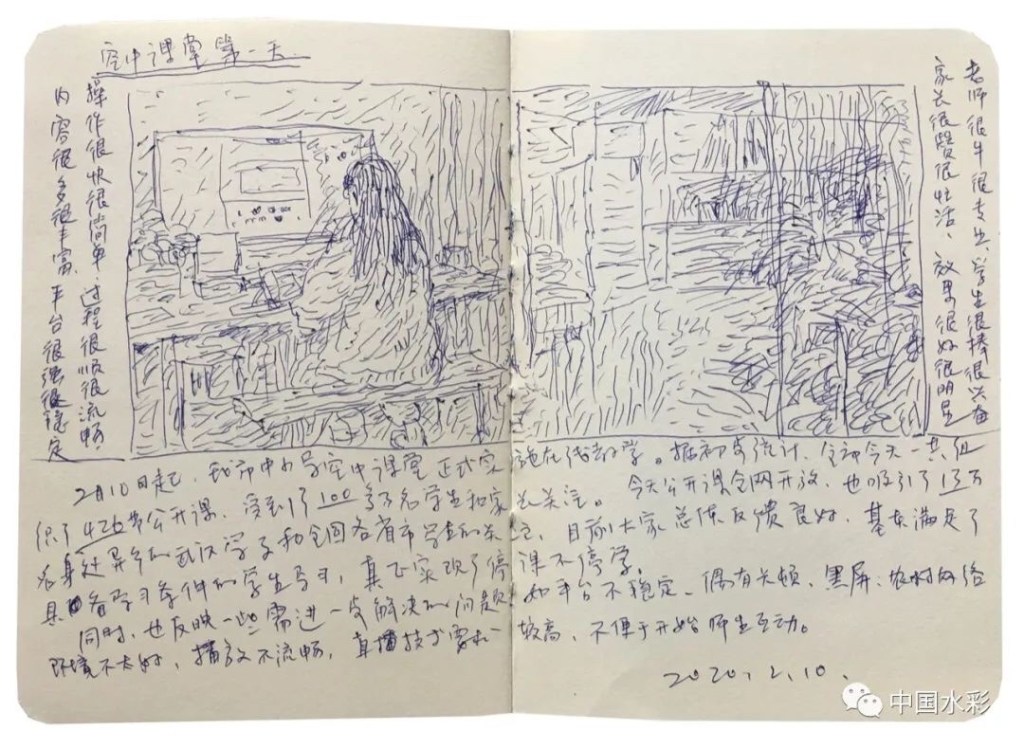 空中课堂第一天
操作很快很简单、过程很顺很流畅、
内容很多很丰富、平台很强很稳定
老师很牛很专业、学生很棒很兴奋
家长很赞很忙活、效果很好很明显
2月10日起,我市中小学空中课堂正式实施在线教学。据初步统计,全市今天一共组
织了426节公开课,受到了100多万名学生和家长关注。今天公开课全网开放,也吸引了13万
名身处异乡的武汉学子和全国各省市学生的关注,目前大家总体反馈良好,基本满足了
具备学习条件的学生学习,真正实现了停课不停学。
同时,也反映一些需进一步解决的问题如平台不稳定、偶有卡顿、黑屏;农村网络
环境不太好,播放不流畅,直播技术要求较高,不便于开始师生互动。
2020.2.10.
中国水彩